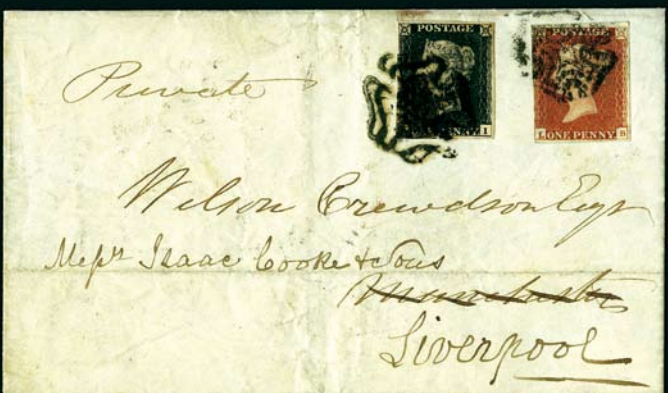 POSTAGE POSTAGE
I L ONE PENNY B
Private
Wilson Crewdson Esqr
Messrs Isaac Cooke & Sons
Manchester
Liverpool